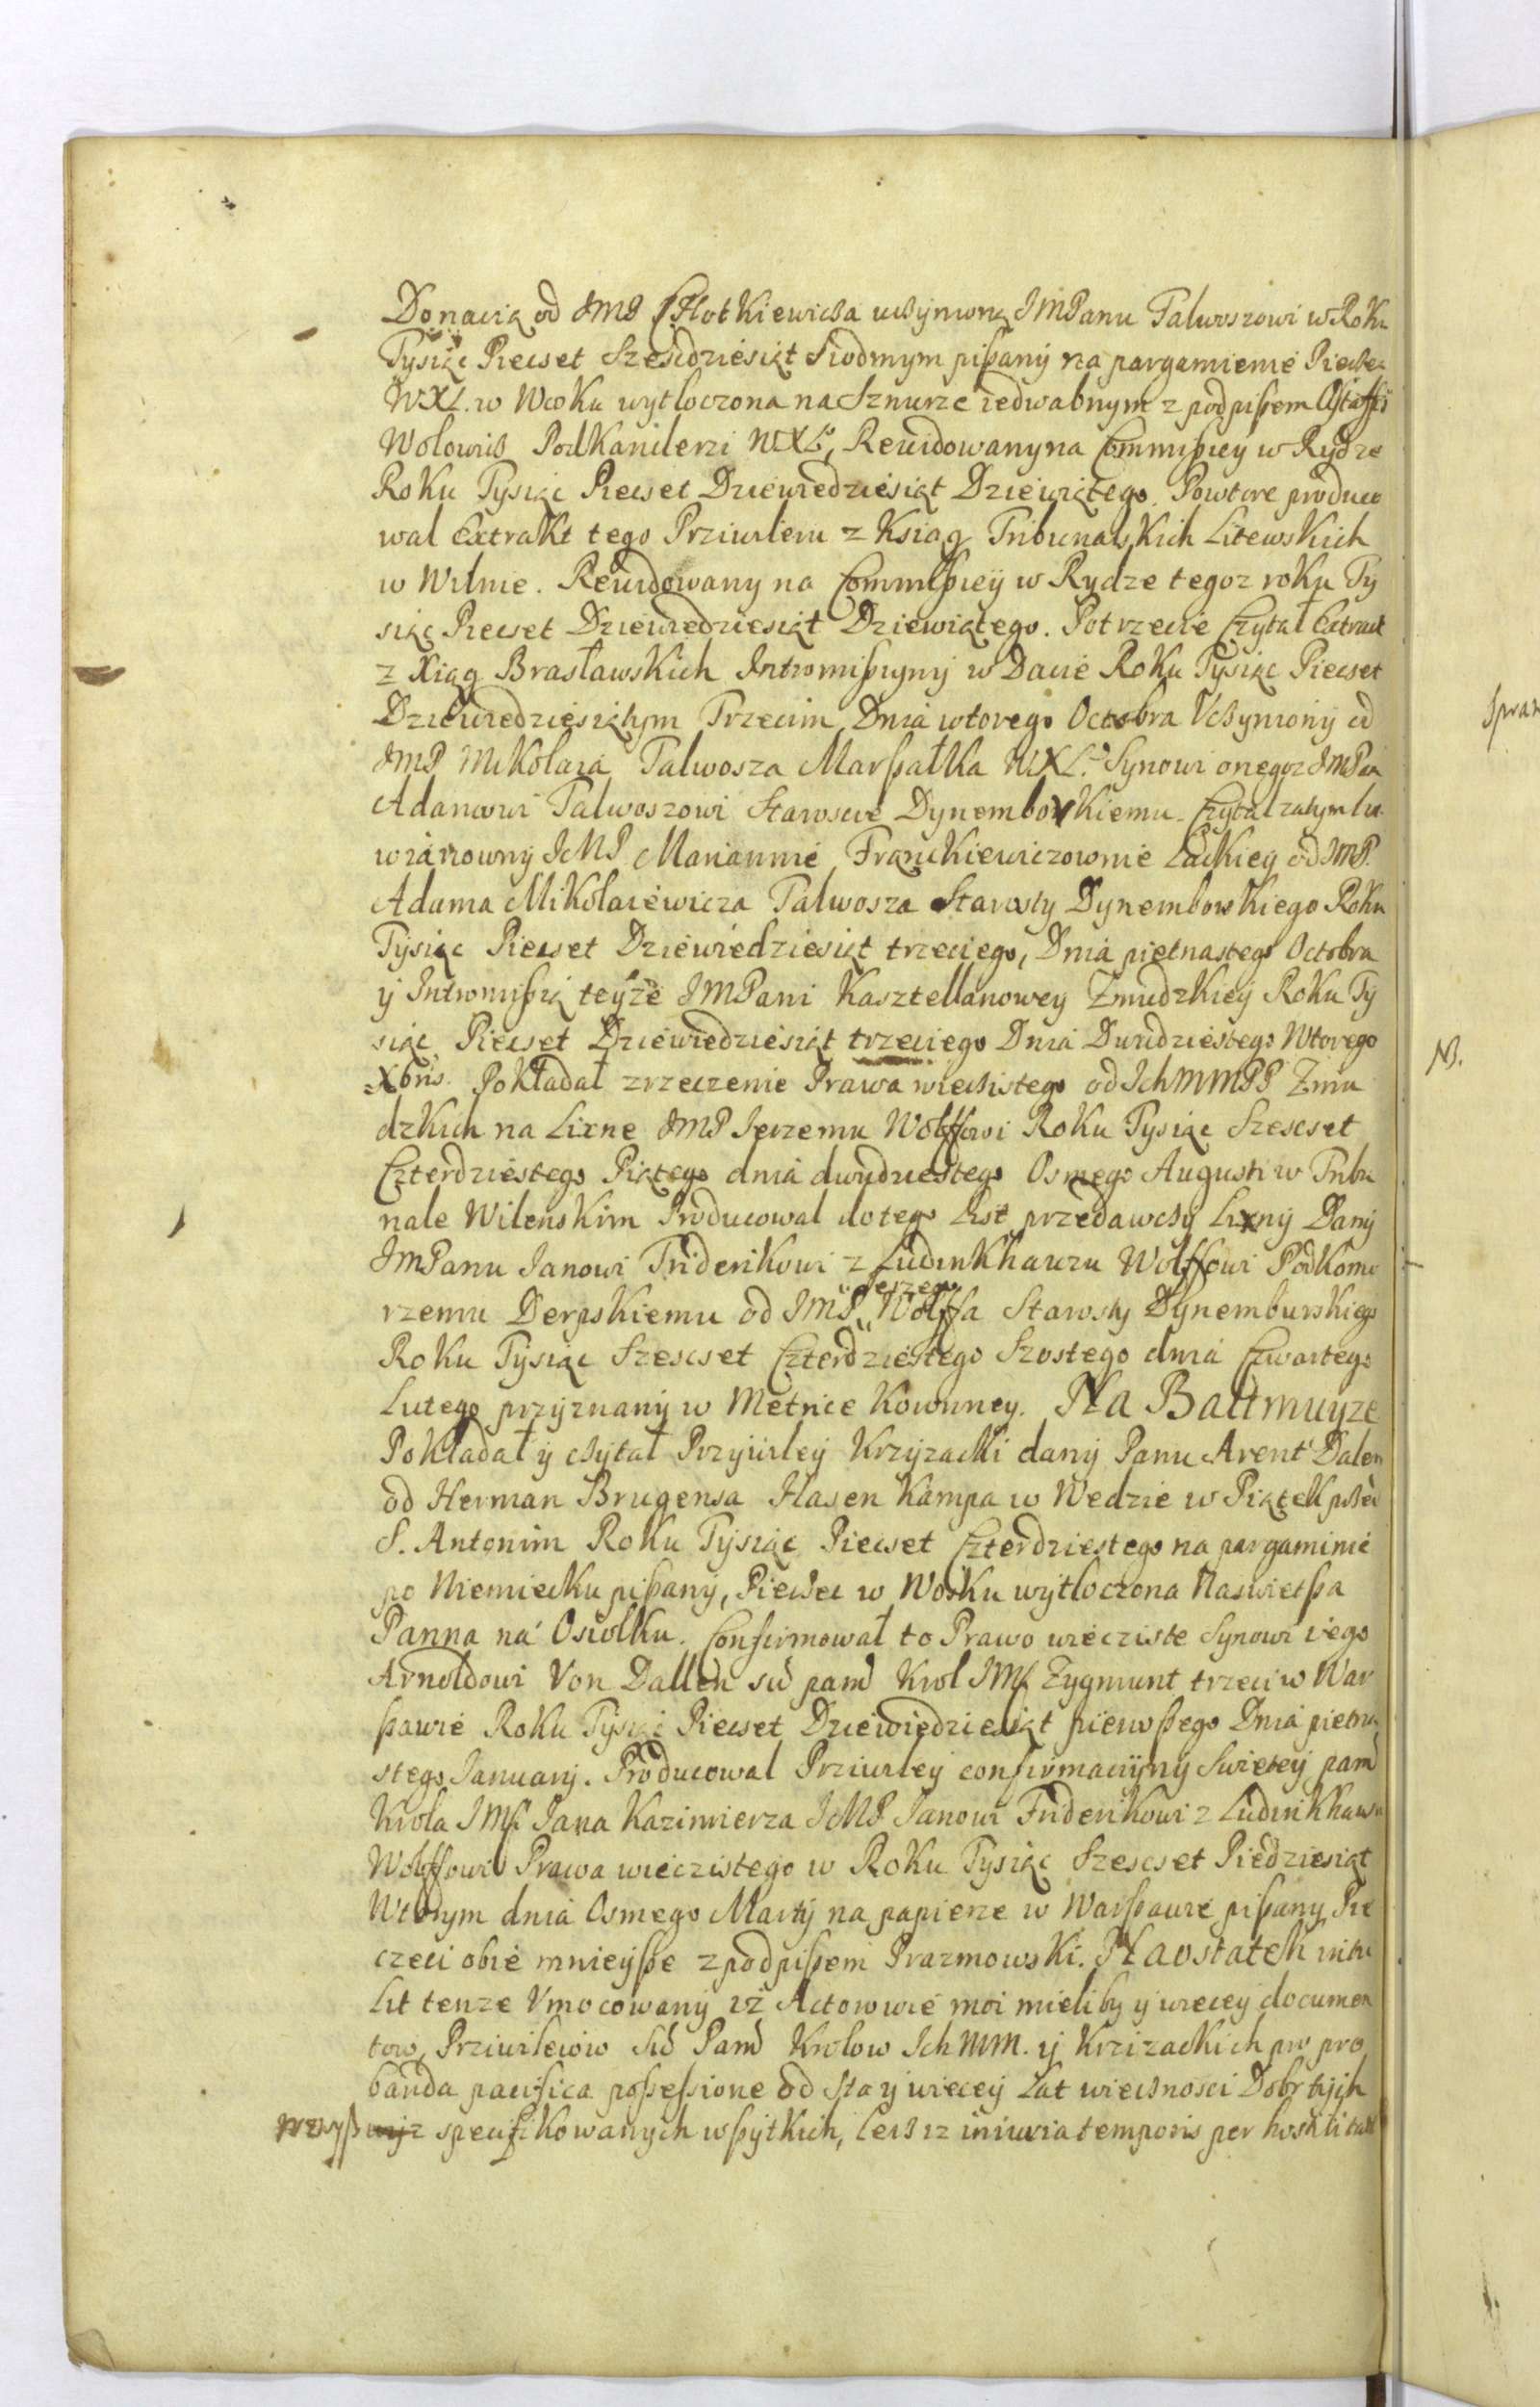 Donacią od JMP Chotkiewicza uczynioną JMPanu Talwoszowi w Roku
Tysiąc Piecset Szescdziesiąt Siodmym pisany na pargamienie Pieczęc
WXL. w Wosku wytloczona na Sznurze iedwabnym z podpisem Ostaffi
Wolowicz PodKanclerzi WXLo, Rewidowany na Commissiey w Rydze
Roku Tysiąc Piecset Dziewiedziesiąt Dziewiątego. Powtore produco
wal Extrakt tego Prziwileiu z Ksiąg Tribunalskich Litewskich
w Wilnie. Rewidowany na Commissiey w Rydze tegoz roku Ty
siąc Piecset Dziewiedziesiąt Dziewiątego. Potrzecie Czytał Extract
z Xiąg Brasławskich Intromissyiny w Dacie Roku Tysiąc Piecset
Dziewiedziesiątym Trzecim Dnia wtorego Octobra Vczyniony od
JMP Mikołaia Talwosza Marszałka WXLo Synowi onegoz JMPan
Adamowi Talwoszowi Staroscie Dynemborskiemu. Czytal zatym
wianowny JeMP Mariannie Franckiewiczownie Lackiey od JMP.
Adama Mikolaiewicza Talwosza Starosty Dynemborskiego Roku
Tysiąc Piecset Dziewiedziesiąt trzeciego, Dnia pietnastego Octobra
y Intromissią teyze JMPani Kasztellanowey Zmudzkiey Roku Ty
siąc Piecset Dziewiedziesiąt trzeciego Dnia Dwudziestego Wtorego
Xbris. Pokładał zrzeczenie Prawa wieczistego od IchMMPP Zmu
dzkich na Lixne JMP Jerzemu Wolffowi Roku Tysiąc Szescset
Czterdziestego Piątego dnia dwudziestego Osmego Augusti w Tribu
nale Wilenskim Producowal do tego List przedawczy Lixny Dany
JMPanu Janowi Friderikowi z Ludinkhauzu Wolffowi Podkomo
rzemu Derpskiemu od JMP „Jerzego„ Wolffa Starosty Dynemburskiego
Roku Tysiąc Szescset Czterdziestego Szostego dnia Czwartego
Lutego przyznany w Metrice Kowunney. Na Baltmuyze
Pokładał y czytał Przywiley Krzyzacki dany Panu Arent Dalen
od Herman Brugensa Hasen Kampa w Wedzie w Piątek przed
S. Antonim Roku Tysiąc Piecset Czterdziestego na pargaminie
po Niemiecku pisany, Pieczec w Wosku wytloczona Naswietsza
Panna na Osiolku. Confirmował to Prawo wiecziste Synowi iego
Arnoldowi Von Dallen sw pam Krol JMs Zygmunt trzeci w War
szawie Roku Tysiąc Piecset Dziewiedziesiąt pierwszego Dnia pietna
stego Januarij. Producowal Prziwiley confirmacyiny Swietey pam
Krola JMs Jana Kazimierza JeMP Janowi Friderikowi z Ludinkhauzu
Wolffowi Prawa wieczistego w Roku Tysiąc Szescset Piedziesiąt
Wtorym dnia Osmego Martij na papierze w Warszawie pisany, Pie
czeci obie mnieysze z podpisem Prazmowski. Na ostatek intu
lit tenze Vmocowany iz Actorowie moi mieliby y wiecey documen
tow, Prziwileiow Sw Pam Krolow Ich MM. y Krzizackich pro pro
banda pacifica possessione od sta y wiecey Lat wiecznosci Dobr tych
wwysz specifikowanych wszytkich, lecz iz iniuria temporis per hostilitat